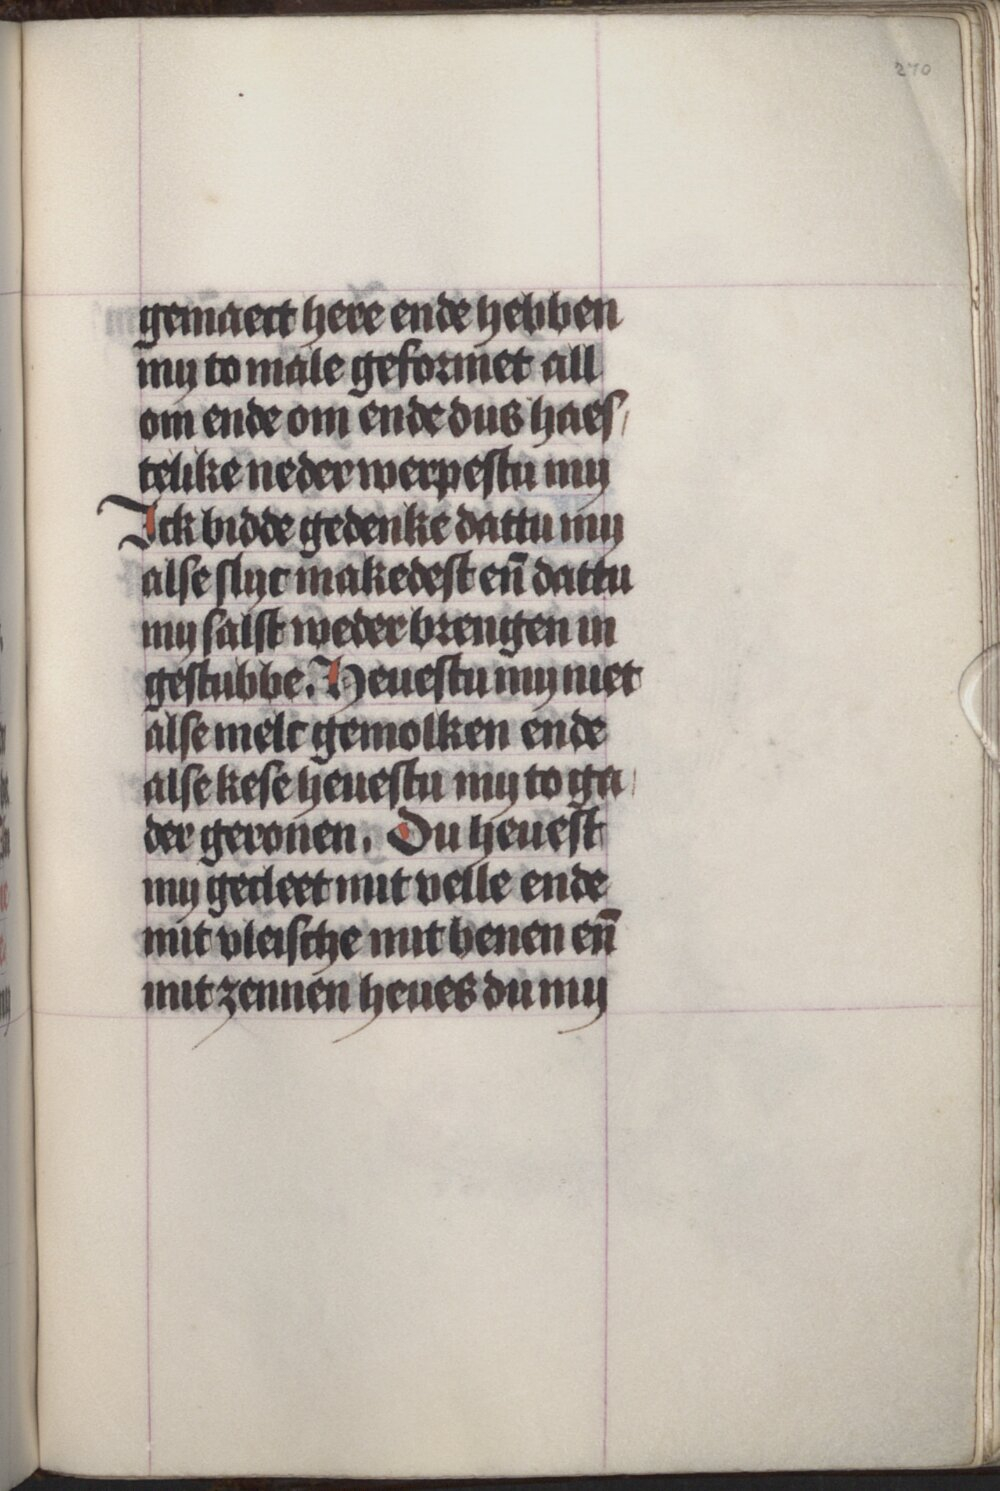 270
gemaect here ende hebben
my to male geformet all
om ende om ende dus haes/
telike neder werpestu my
Ick bidde gedenke dattu my
alse slyc makedest en̄ dattu
my salst weder brengen in
gestubbe. Heuestu my niet
alse melc gemolken ende
alse kese heuestu my to ga/
der geronen. Du heuest
my gecleet mit velle ende
mit vleische mit benen en̄
mit zennen heues du my